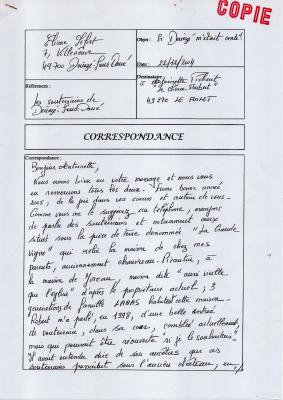 COPIE
Eliane
7, Villeneuve
49700 Doué-Sous-Doué
Objet : Si Douces m'était conté
Date : 22/12/2004
Références :
Les souterrains de
Destinataire :
à Antoinette
49270 LE
CORRESPONDANCE
Correspondance :
Bonjour Antoinette,
Nous avons bien eu votre message et nous vous
en remercions tous les deux. Bonne année
2005, de la joie dans vos cœurs et autour de vous.
Comme vous me le suggérez au téléphone,
de parler des souterrains et notamment ceux
situés sous la pièce de terre dénommée "La Grande
Vigne" qui relie la maison de chez mes
parents, anciennement
la maison de maison dite "aussi vieille
que l'église" d'après le propriétaire actuel ; 3
générations de famille LABAS habitent cette maison.
Robert m'a parlé, en 1998, d'une belle entrée
de souterrain, dans sa cour, comblée actuellement,
mais qui pourrait être réouverte si je le souhaitais.
Il avait entendu dire de ses ancêtres que ces
souterrains passaient sous l'ancien château, en